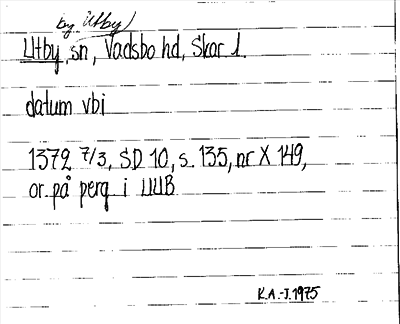 by Utby)
Utby, sn, Vadsbo hd, Skar l.
datum vbi
1379 7/3, SD 10, s. 135, nr X 149,
or. på perg i UUB
K.A.-J. 1975